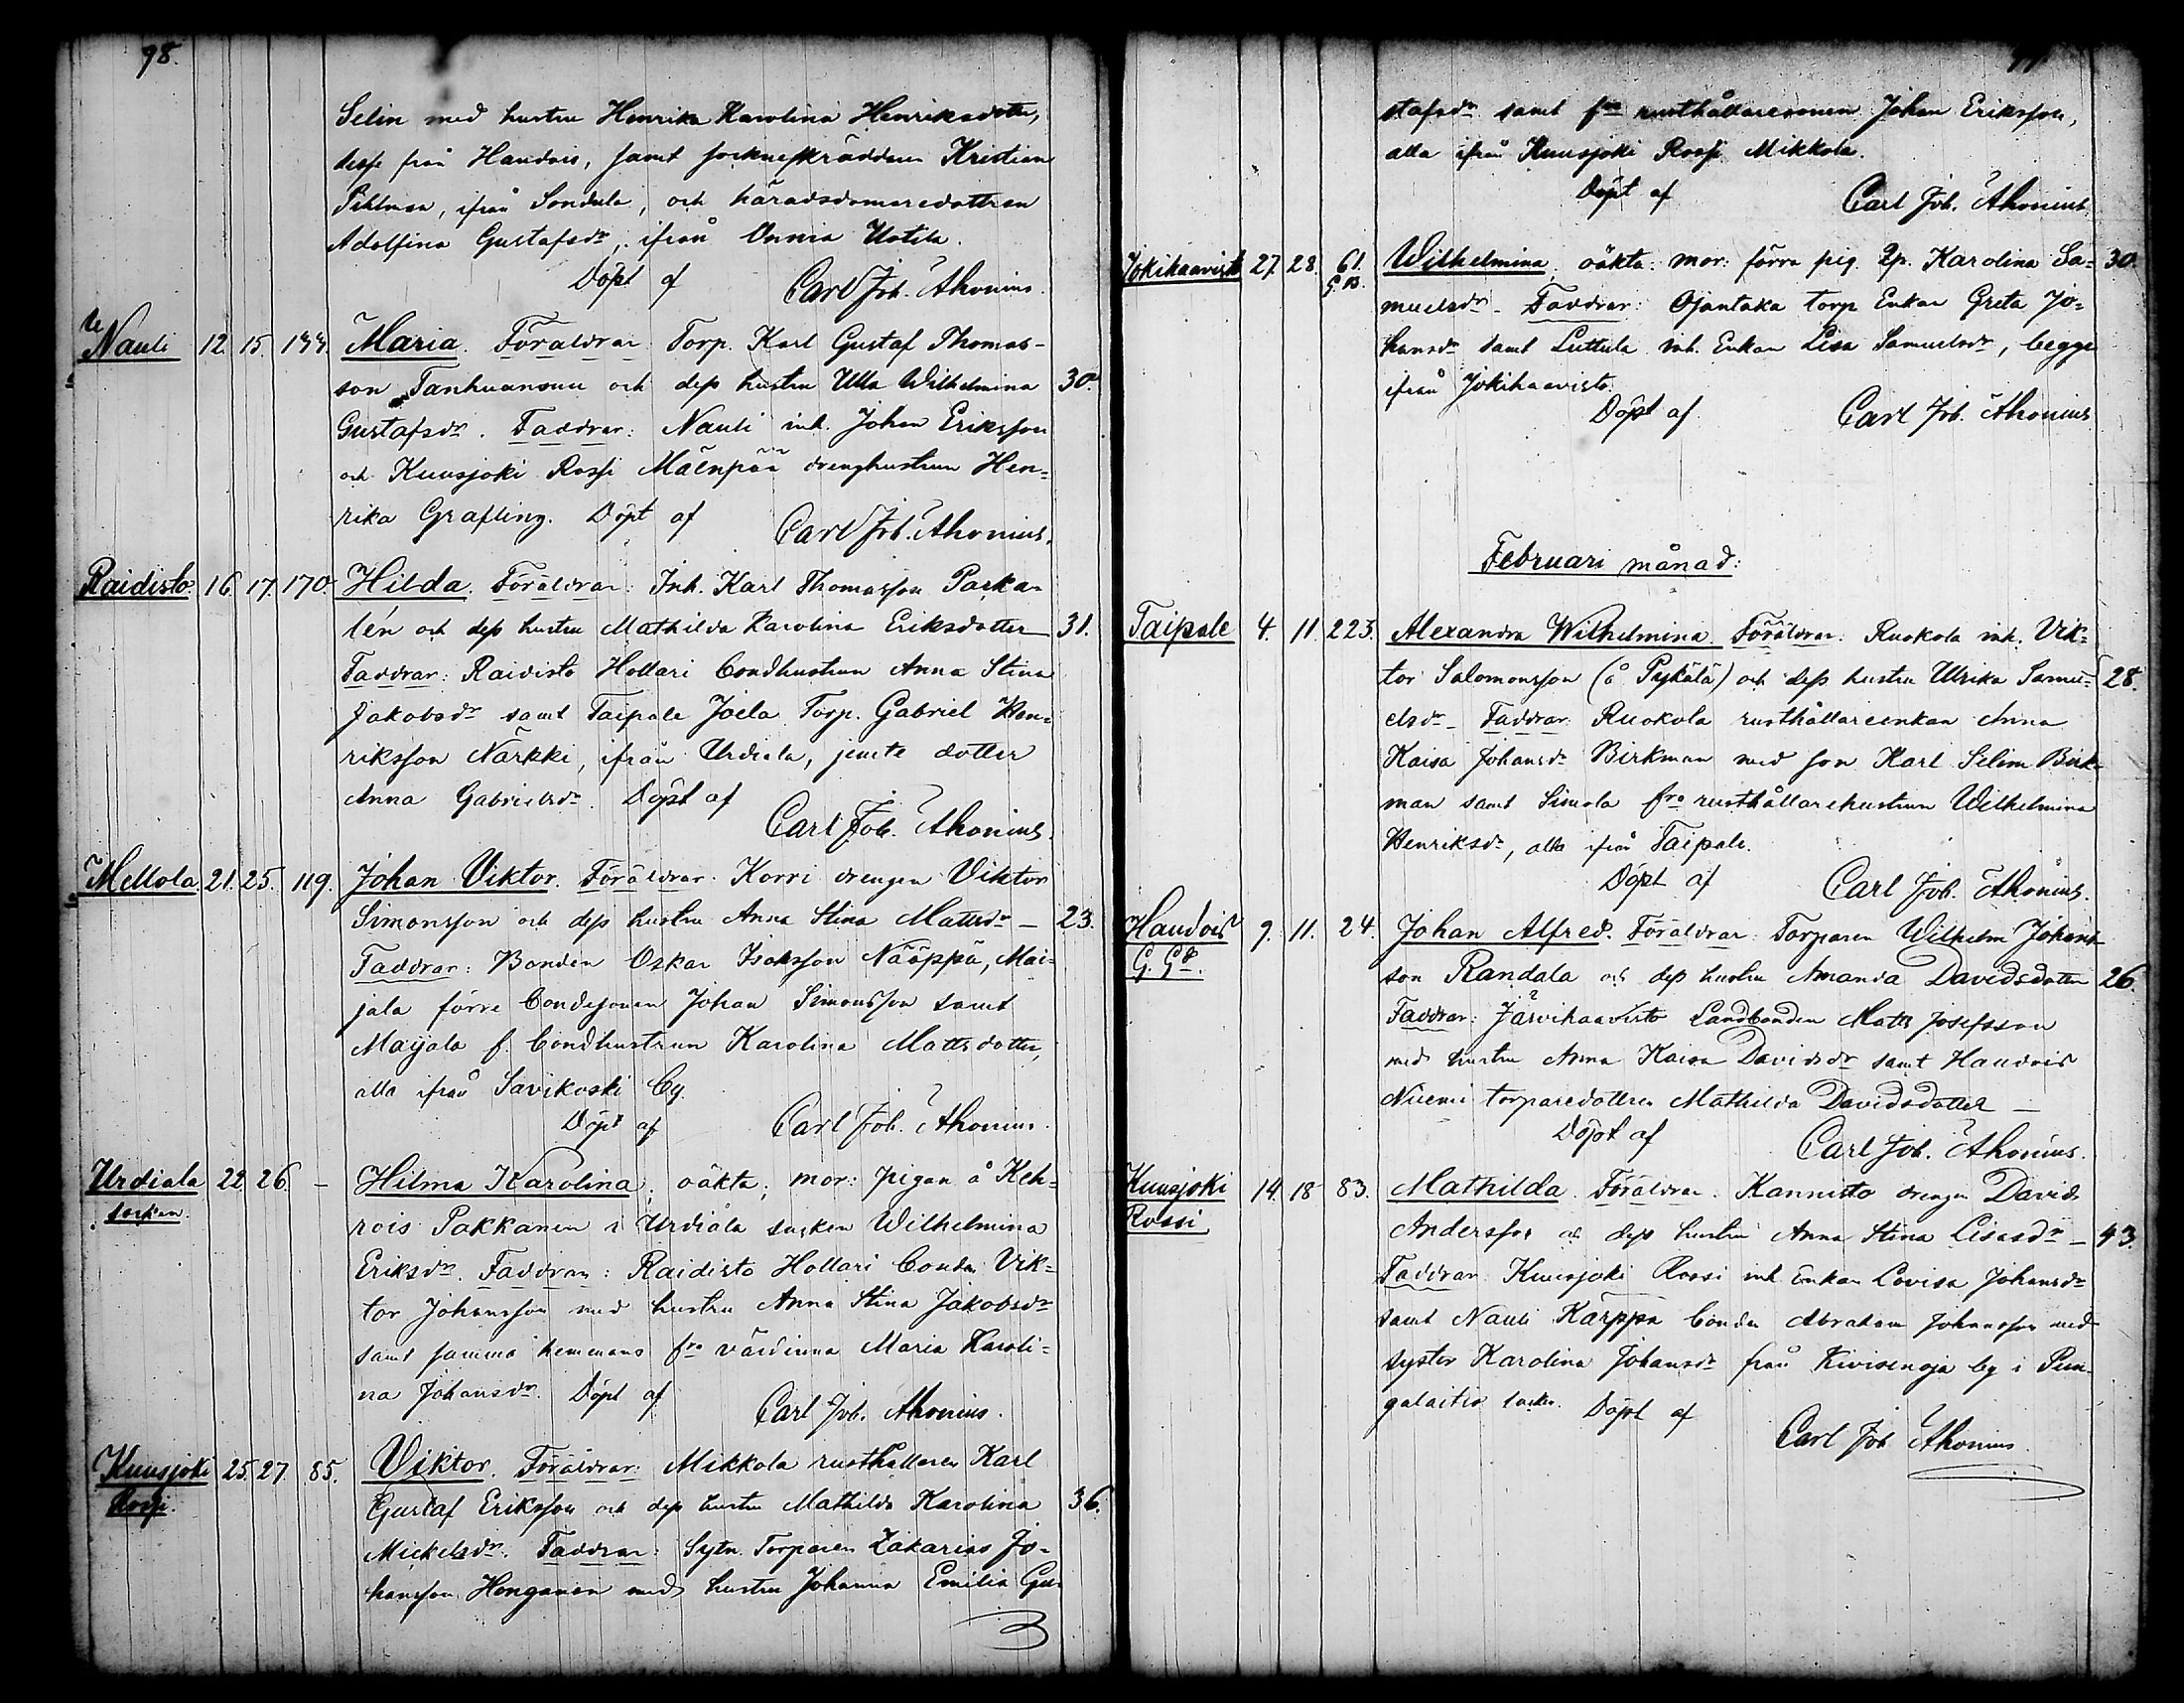 98.
Selin med hustru Henrika Karolina Henriksdotter,
desse från Haudois, samt sockneskräddaren Kristian
Pihlman, ifrån Sondula, och häradsdomaredottren
Adolfina Gustafsdr, ifrån Onnia Uotila.
Döpt af Carl Joh. Ahonius.
Nauli 12. 15. 144. Maria. Föräldrar: Torp. Karl Gustaf Thomas-
son Tanhuansuu och dess hustru Ulla Wilhelmina 30.
Gustafsdr. Faddrar: Nauli inh. Johan Eriksson
och Kuusjoki Rossi Mäenpää drenghustrun Hen-
rika Grafling. Döpt af Carl Joh. Ahonius.
Raidisto 16. 17. 170. Hilda. Föräldrar: Inh. Karl Thomasson Parka-
lén och dess hustru Mathilda Karolina Eriksdotter 31.
Faddrar: Raidisto Hollari bondhustrun Anna Stina
Jakobsdr samt Taipale Joela Torp. Gabriel Hen-
riksson Närkki, ifrån Urdiala, jemte dotter
Anna Gabrielsdr. Döpt af
Carl Joh. Ahonius.
Mellola 21. 25. 119. Johan Viktor. Föräldrar: Korri drengen Viktor
Simonsson och dess hustru Anna Stina Mattsdr — 23.
Faddrar: Bonden Oskar Isaksson Nääppä, Mai-
jala förre bondesonen Johan Simonsson samt
Maijala f. bondhustrun Karolina Mattsdotter,
alla ifrån Savikoski by.
Döpt af Carl Joh. Ahonius.
Urdiala 22. 26. – Hilma Karolina; oäkta; mor: pigan å Keh-
socken. rois Pakkanen i Urdiala socken Wilhelmina
Eriksdr. Faddrar: Raidisto Hollari bonden Vik-
tor Johansson med hustru Anna Stina Jakobsdr
samt samma hemmans fra värdinna Maria Karoli-
na Johansdr. Döpt af
Carl Joh. Ahonius.
Kuusjoki 25. 27. 85. Viktor. Föräldrar: Mikkola rusthållaren Karl
Rossi. Gustaf Eriksson och dess hustru Mathilda Karolina 36.
Mickelsdr. Faddrar: Sytn. Torparen Zakarias Jo-
hansson Honganen med hustru Johanna Emilia Gu-
stafsdr samt fre rusthållaresonen Johan Eriksson,
alla ifrån Kuusjoki Rossi Mikkola.
Döpt af Carl Joh. Ahonius.
Jokihaavisto 27. 28. 61. Wilhelmina. oäkta: mor: förra pig. Karolina Sa- 30.
muelsdr – Faddrar: Ojantaka torp Enkan Greta Jo-
hansdr samt Luttula inh. Enkan Lisa Samuelsdr, begge
ifrån Jokihaavisto.
Döpt af Carl Joh. Ahonius
Februari månad:
Taipale 4. 11. 223. Alexandra Wilhelmina. Föräldrar: Ruokola inh. Vik-
tor Salomonsson (å Pykälä) och dess hustru Ulrika Samu- 28.
elsdr – Faddrar: Ruokola rusthållareenkan Anna
Kaisa Johansdr Birkman med son Karl Selim Birk-
man samt Simola fra rusthållarehustrun Wilhelmina
Henriksdr, alla ifrån Taipale.
Döpt af Carl Joh. Ahonius.
Haudois 9. 11. 24. Johan Alfred. Föräldrar: Torparen Wilhelm Johans-
G. Gd. son Randala och dess hustru Amanda Davidsdotter 26.
Faddrar: Järvihaavisto Landbonden Matts Josefsson
med hustru Anna Kaisa Davidsdr samt Haudois
Niemi torparedottren Mathilda Davidsdotter —
Döpt af Carl Joh. Ahonius.
Kuusjoki 14. 18. 83. Mathilda. Föräldrar: Kannisto drengen David
Rossi Andersson och dess hustru Anna Stina Lisasdr — 43.
Faddrar: Kuusjoki Rossi inh. Enkan Lovisa Johansdr
samt Nauli Karppa bonden Abraham Johansson med
syster Karolina Johansdr från Kivisenoja by i Pun-
galaitio socken. Döpt af
Carl Joh. Ahonius.